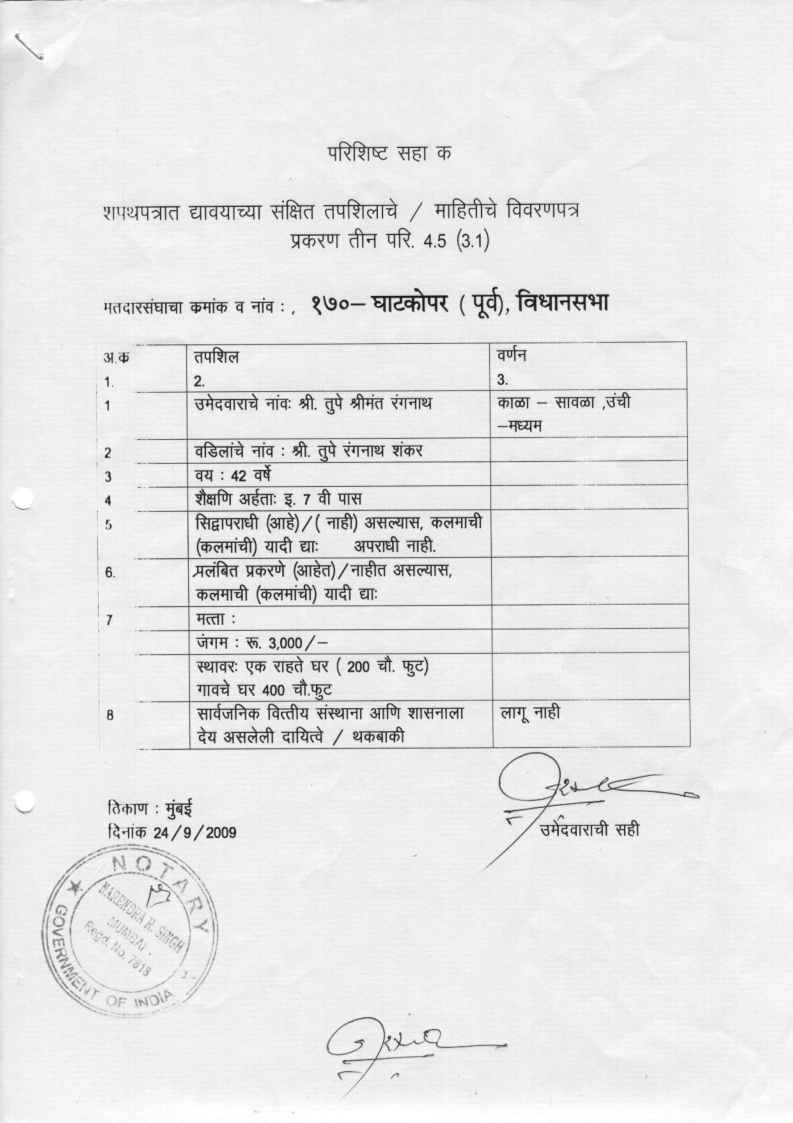 परिशिष्ट सहा क
शपथपत्रात द्यावयाच्या संक्षित तपशिलाचे / माहितीचे विवरणपत्र
प्रकरण तीन परि. 4.5 (3.1)
मतदारसंघाचा कमांक व नांव : , १७०– घाटकोपर ( पूर्व), विधानसभा
अ.क तपशिल वर्णन
1. 2. 3.
1 उमेदवाराचे नांवः श्री. तुपे श्रीमंत रंगनाथ काळा – सावळा ,उंची
–मध्यम
2 वडिलांचे नांव : श्री. तुपे रंगनाथ शंकर
3 वय : 42 वर्षे
4 शैक्षणि अर्हताः इ. 7 वी पास
5 सिद्वापराधी (आहे) / ( नाही) असल्यास, कलमाची
(कलमांची) यादी द्याः अपराधी नाही.
6. प्रलंबित प्रकरणे (आहेत) / नाहीत असल्यास,
कलमाची (कलमांची) यादी द्याः
7 मत्ता :
जंगम : रू. 3,000 / –
स्थावरः एक राहते घर ( 200 चौ. फुट)
गावचे घर 400 चौ.फुट
8 सार्वजनिक वित्तीय संस्थाना आणि शासनाला लागू नाही
देय असलेली दायित्वे / थकबाकी
ठिकाण : मुंबई
दिनांक 24 / 9 / 2009
उमेदवाराची सही
NOTARY
NARENDRA R. SINGH
MUMBAI
Regd. No. 7818
GOVERNMENT OF INDIA